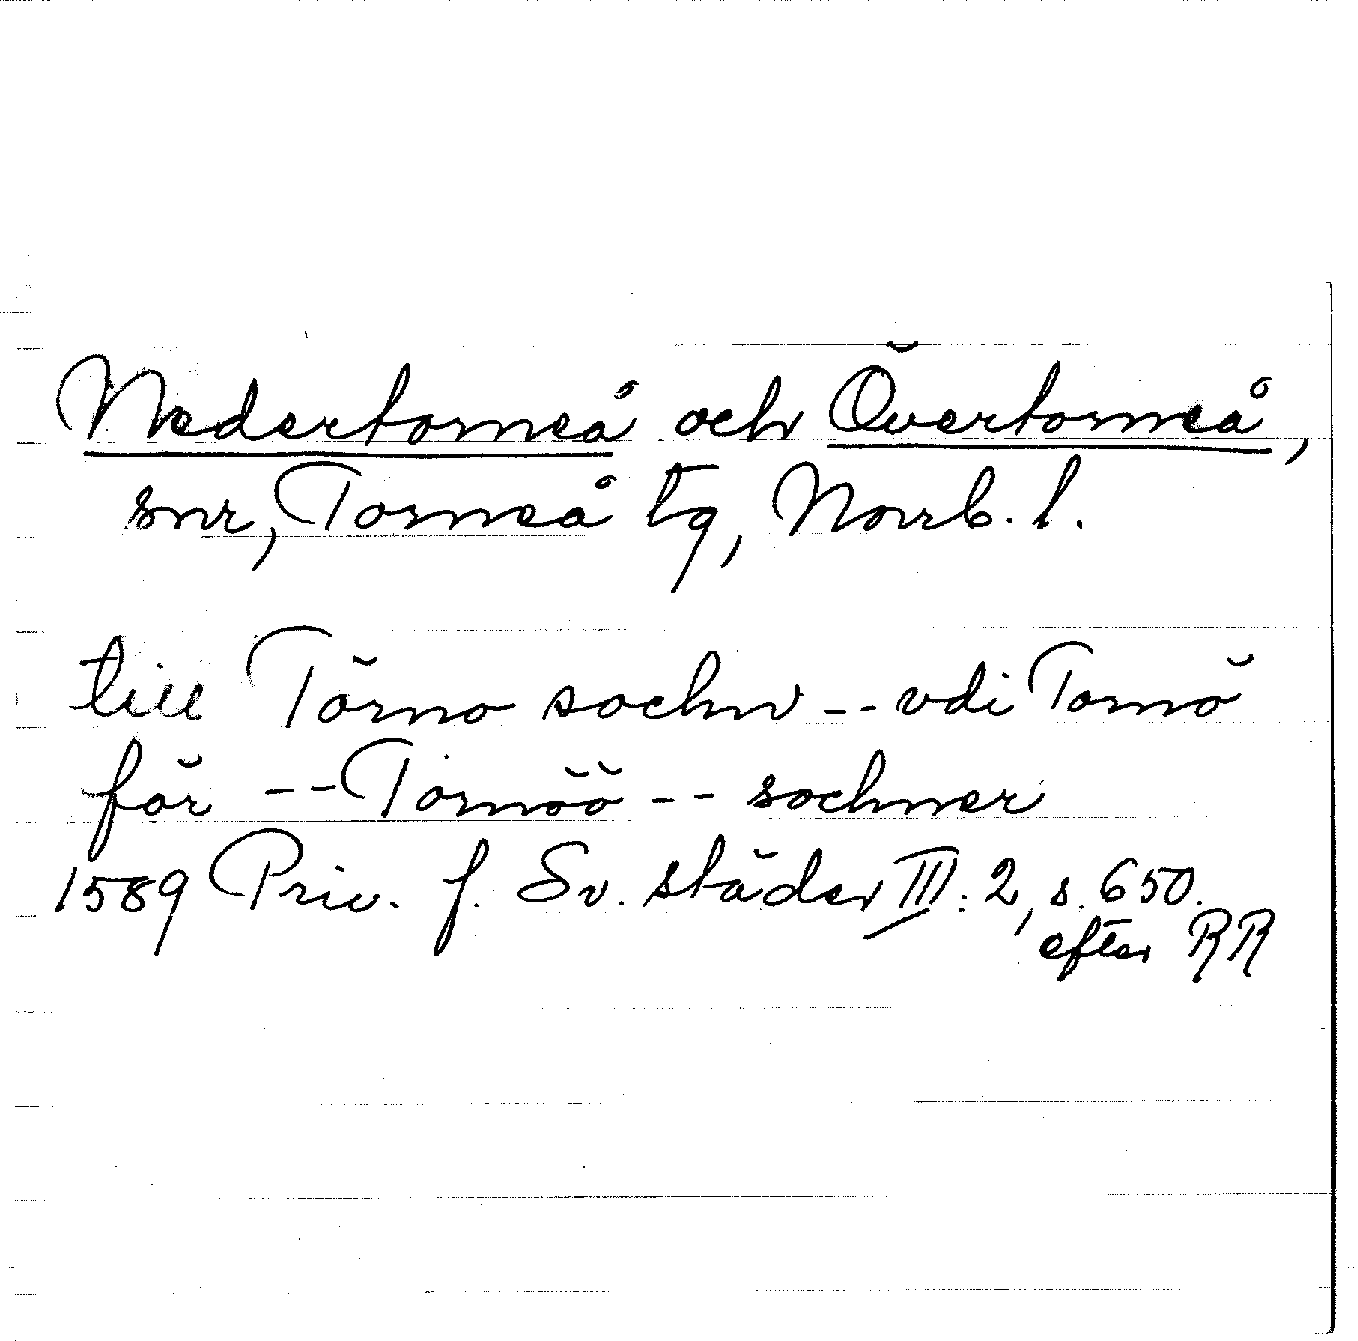 Nedertorneå och Övertorneå,
snr, Torneå tg, Norrb. l.
till Törno sochn -- vdi Tornö
för -- Tornöö -- sochner
1589 Priv. f. Sv. städer III: 2, s. 650.
efter RR